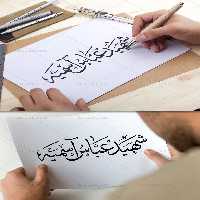 شهید عباس آسمیه
شهید عباس آسمیه